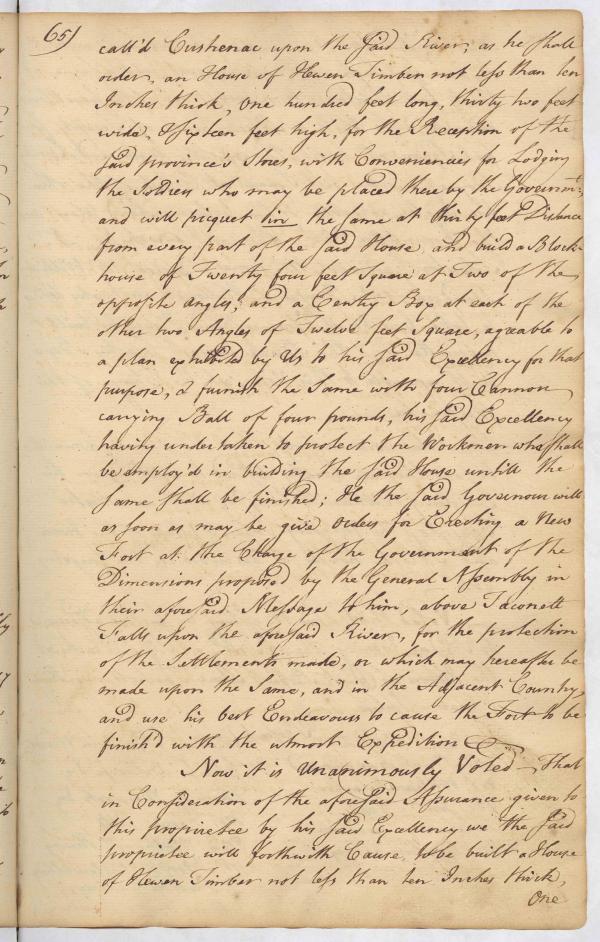 65)
call'd Cushenac upon the said River, as he shall
order, an House of Hewen Timber not less than ten
Inches thick, one hundred feet long, thirty two feet
wide, & sixteen feet high, for the Reception of the
said province's Stores, with Conveniencies for Lodging
the Soldiers who may be placed there by the Governmt;
and will picquet in the same at thirty feet Distance
from every part of the said House, and build a Block-
house of Twenty four feet Square at Two of the
opposite angles, and a Centry Box at each of the
other two Angles of Twelve feet Square, agreable to
a plan exhibited by Us to his said Excellency for that
purpose, & furnish the Same with four Cannon
carrying Ball of four pounds, his said Excellency
having undertaken to protect the Workmen who shall
be employ'd in building the said House untill the
same shall be finished; He the said Governour will
as soon as may be give orders for Erecting a New
Fort at the Charge of the Government of the
Dimensions proposed by the General Assembly in
their aforesaid Message to him, above Taconett
Falls upon the aforesaid River, for the protection
of the Settlements made, or which may hereafter be
made upon the Same, and in the Adjacent Country,
and use his best Endeavours to cause the Fort to be
finish'd with the utmost Expedition
Now it is Unanimously Voted, That
in Consideration of the aforesaid Assurance given to
this propriretee by his said Excellency we the said
proprietee will forthwith Cause to be built a House
of Hewen Timber not less than ten Inches thick,
One